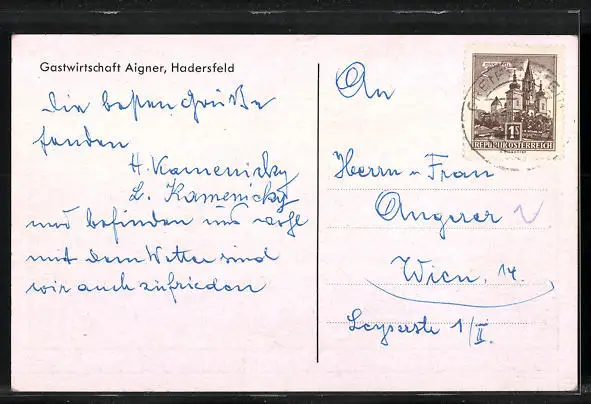 Gastwirtschaft Aigner, Hadersfeld
Die besten Grüße
senden
H. Kamenicky
L. Kamenicky
und befinden uns wohl
mit dem Wetter sind
wir auch zufrieden
An
Herrn u Frau
Angerer
Wien. 14.
Leyserstr 1/II.
1S
REPUBLIK ÖSTERREICH